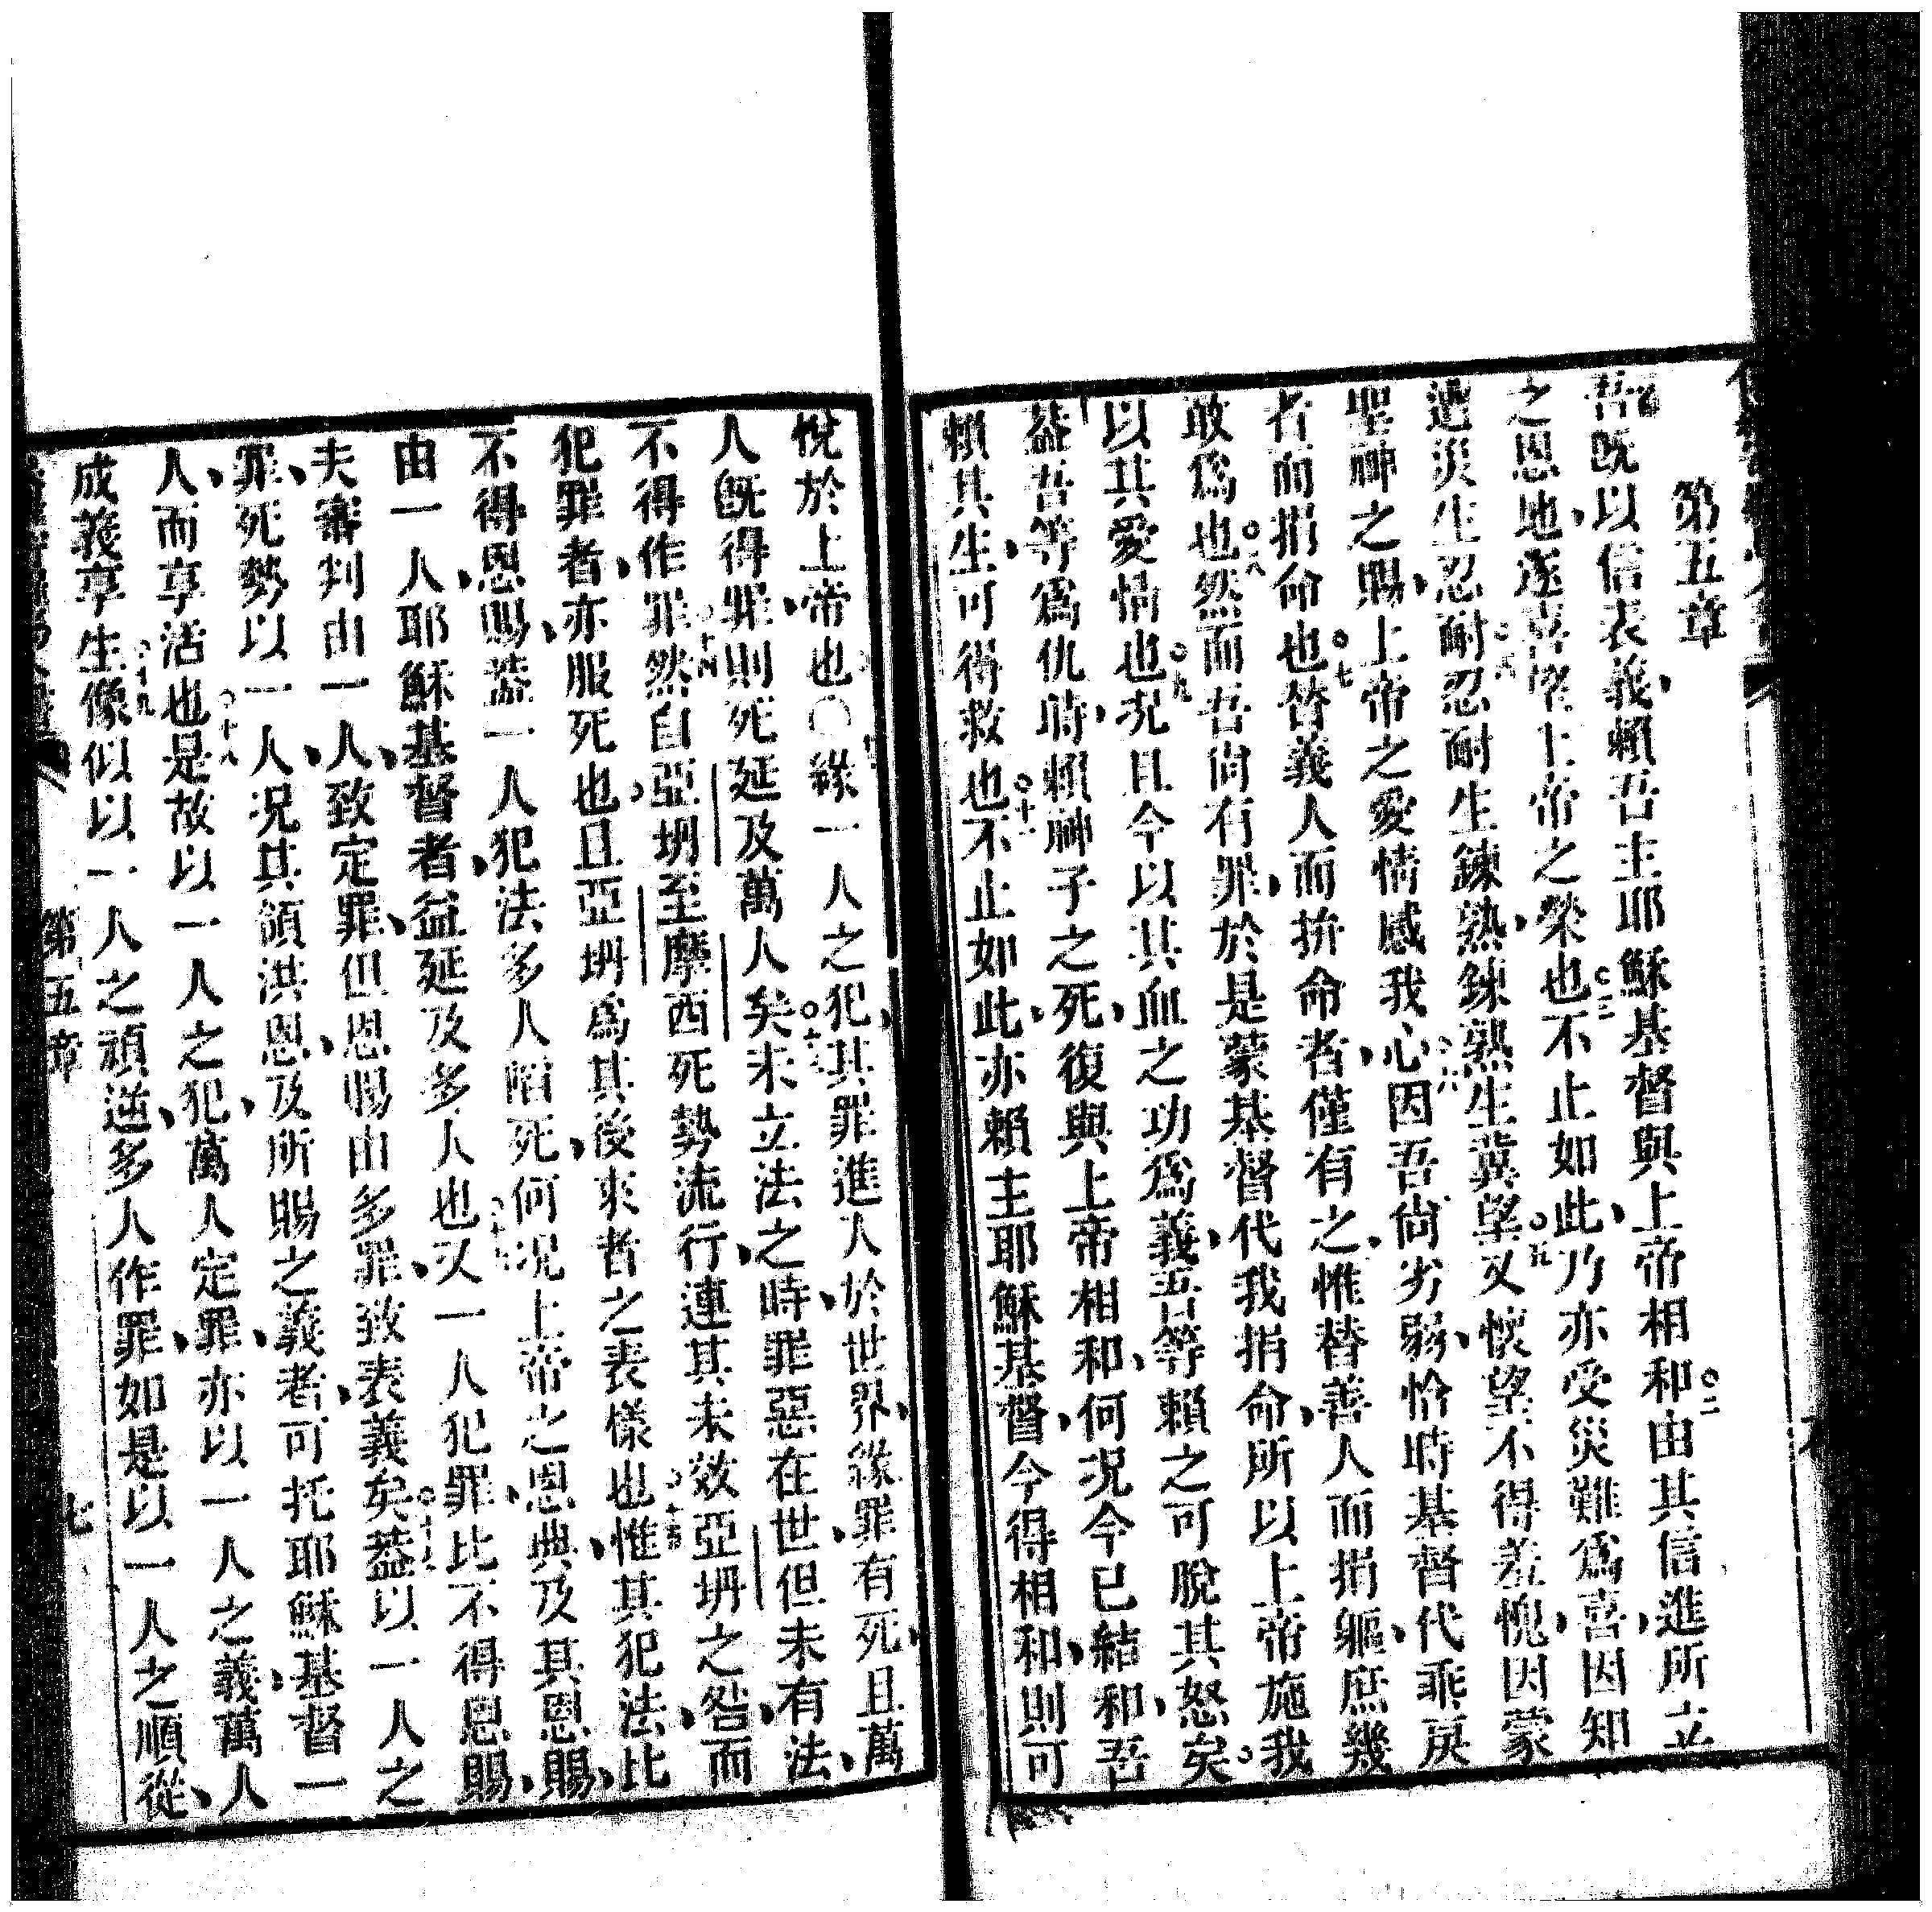 第五章
吾既以信表義、賴吾主耶穌基督與上帝相和○二由其信、進所立
之恩地、遂喜望上帝之榮也○三不止如此、乃亦受災難爲喜、因知
遭災生忍耐○四忍耐生鍊熟、鍊熟生冀望○五又懷望不得羞愧、因蒙
聖神之賜、上帝之愛情感我心○六因吾尙劣弱、恰時基督代乖戾
者而捐命也○七替義人而拚命者、僅有之、惟替善人而捐軀、庶幾
敢爲也○八然而吾尙有罪、於是蒙基督代我捐命、所以上帝施我
以其愛情也○九况且今以其血之功爲義、吾等賴之可脫其怒矣。
葢吾等爲仇時、賴神子之死、復與上帝相和、何况今已結和、吾
賴其生、可得救也○十一不止如此、亦賴主耶穌基督、今得相和、則可
悅於上帝也○緣一人之犯、其罪進入於世界、緣罪有死、且萬
人旣得罪、則死延及萬人矣○十三未立法之時、罪惡在世、但未有法、
不得作罪○十四然自亞坍至摩西死勢流行、連其未效亞坍之咎、而
犯罪者、亦服死也。且亞坍爲其後來者之表樣也○十五惟其犯法、比
不得恩賜、葢一人犯法多人陷死、何况上帝之恩典、及其恩賜、
由一人、耶穌基督者、益延及多人也○十六又一人犯罪、比不得恩賜、
夫審判由一人、致定罪、但恩賜由多罪、致表義矣○十七葢以一人之
罪、死勢以一人、况其領洪恩、及所賜之義者、可托耶穌基督一
人、而享活也○十八是故以一人之犯、萬人定罪、亦以一人之義、萬人
成義享生○十九像似以一人之頑逆、多人作罪、如是以一人之順從、
第五章
七